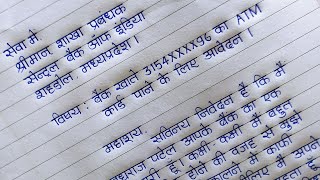 सेवा में
श्रीमान शाखा प्रबंधक
सेन्ट्रल बैंक आफ इंडिया
शहडोल, मध्यप्रदेश।
विषय:- बैंक खाते 3154XXXX96 का ATM
कार्ड पाने के लिए आवेदन।
महाशय, सविनय निवेदन है कि मैं
पटेल आपके बैंक का एक
हूं। कभी-कभी मैं बहुत
होने की वजह से मुझे
में काफी
अपने